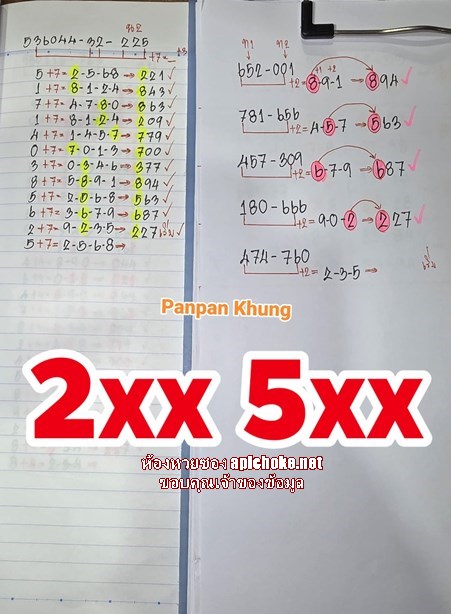 ทบ2
536044-32- 225
+7=_
5+7= 2-5-6-8→ 221✓
1+7= 8-1-2-4→ 843✓
7+7= 4-7-8-0→ 863✓
1+7= 8-1-2-4→ 209✓
4+7= 1-4-5-7→ 779✓
0+7= 7-0-1-3→ 700✓
3+7= 0-3-4-6→ 377✓
8+7= 5-8-9-1→ 894✓
5+7= 2-5-6-8→ 563✓
6+7= 3-6-7-9→ 687✓
2+7= 9-2-3-5→ 227✓
5+7= 2-5-6-8→
ท1 ท2
652-001
+2= 8-9-1 →894✓
781-656
+2= 4-5-7 →563✓
457-309
+2= 6-7-9 →687✓
180-666
+2= 9-0-2→227✓
474-760
+2= 2-3-5→
Panpan Khung
2xx 5xx
ห้องหวยซอง apichoke.net
ขอบคุณเจ้าของข้อมูล